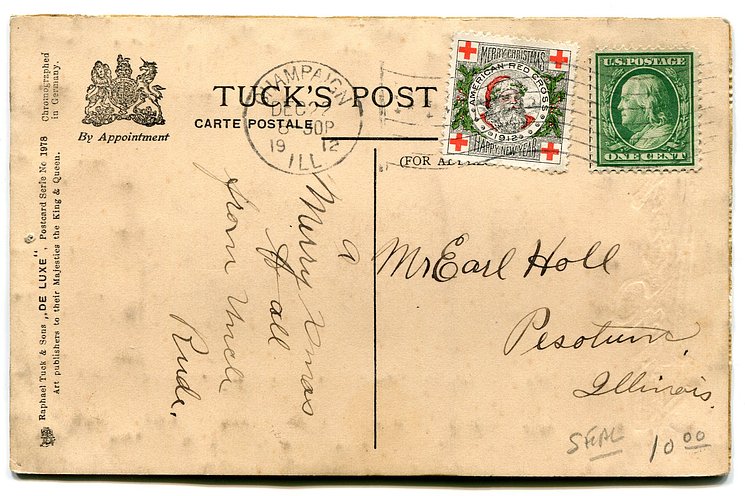 Raphael Tuck & Sons „DE LUXE", Postcard Serie No 1978 Chromographed
in Germany.
Art publishers to their Majesties the King & Queen.
By Appointment
TUCK'S POST
CARTE POSTALE
CHAMPAIGN
DEC
8-30P
19 12
ILL
MERRY CHRISTMAS
AMERICAN RED CROSS
1912
HAPPY NEW YEAR
U.S. POSTAGE
ONE CENT
(FOR
a
Merry Xmas
all
from Uncle
Rude.
Mr Earl Holl
Pesotum
Illinois.
SEAL
10 00